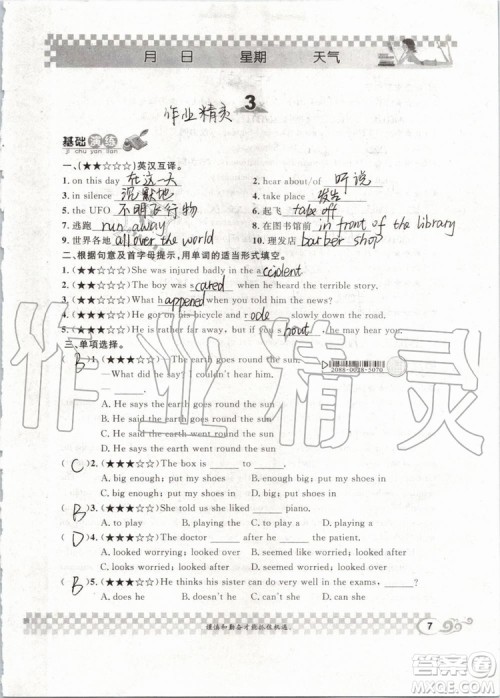 月 日 星期 天气
3
作业精灵
基础演练
ji chu yan lian
一、(★★☆☆☆)英汉互译。
1. on this day 在这一天 2. hear about/of 听说
3. in silence 沉默地 4. take place 发生
5. the UFO 不明飞行物 6. 起飞 take off
7. 逃跑 run away 8. 在图书馆前 in front of the library
9. 世界各地 all over the world 10. 理发店 barber shop
二、根据句意及首字母提示,用单词的适当形式填空。
1. (★★☆☆☆)She was injured badly in the accident
2. (★★☆☆☆)The boy was scared when he heard the terrible story.
3. (★★☆☆☆)What happened when you were having dinner?
4. (★★★☆☆)He got on his bicycle and rode slowly down the road.
5. (★★★☆☆)He is rather far away. If you shout, he may hear you.
三、单项选择。
( B )1. (★★★☆☆)—The earth goes round the sun.
—What did he say? I couldn't hear clearly.
—
A. He says the earth goes round the sun
B. He said the earth goes round the sun
C. He said the earth went round the sun
D. He says the earth went round the sun
2088-0038-5070
( C )2. (★★★☆☆)The box is ______ to ______.
A. big enough; put my shoes B. enough big; put my shoes
C. big enough; put my shoes in D. enough big; put my shoes in
( B )3. (★★★☆☆)She told us she liked ______ piano.
A. to play B. playing the
C. playing a D. playing
( D )4. (★★★☆☆)The doctor ______ after he ______ the patient.
A. looked worrying; looked over B. seemed worried; looked for
C. looked worried; looked at D. seemed worried; looked over
( B )5. (★★★☆☆)He thinks his sister can do very well even in exams, ______?
A. does he B. doesn't he C. can she D. can't she
谨慎和勤奋才能抓住机遇。
7
作业精灵
答案圈
MXQE.COM